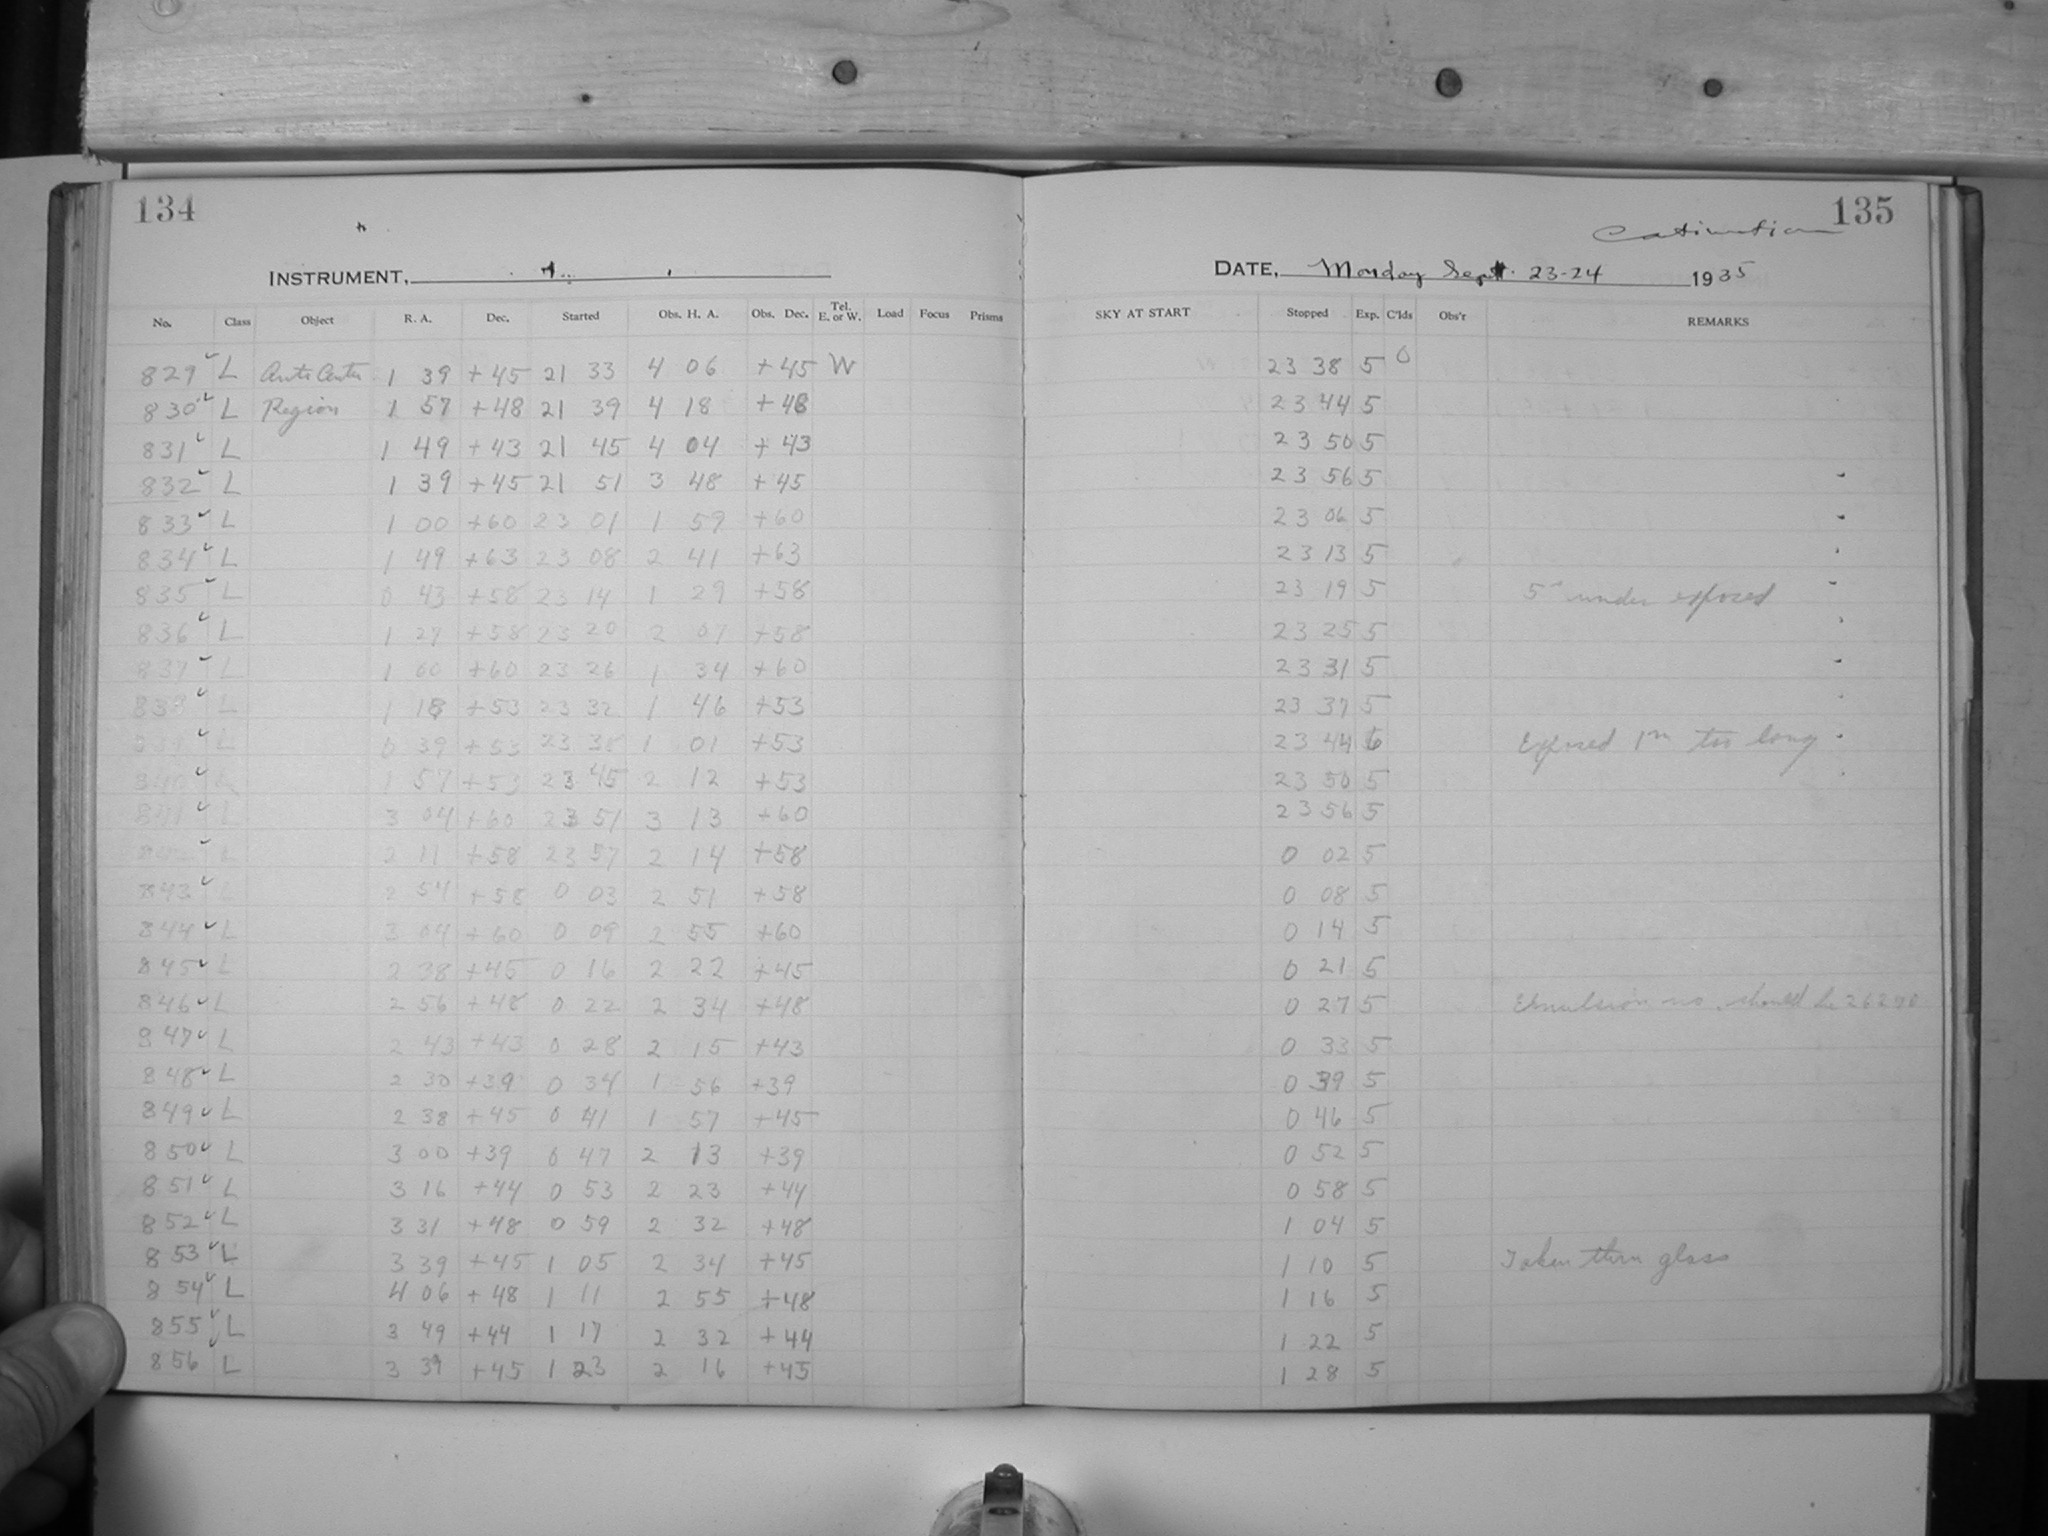 134
135
INSTRUMENT,
DATE, Monday Sept. 23-24 1935
No. Class Object R. A. Dec. Started Obs. H. A. Obs. Dec. Tel. E. or W. Load Focus Prisms SKY AT START Stopped Exp. C'lds Obs'r REMARKS
829 L Anti Center 1 39 +45 21 33 4 06 +45 W 23 38 5 0
830 L Region 1 57 +48 21 39 4 18 +48 23 44 5
831 L 1 49 +43 21 45 4 04 +43 23 50 5
832 L 1 39 +45 21 51 3 48 +45 23 56 5
833 L 1 00 +60 23 01 1 59 +60 23 06 5
834 L 1 49 +63 23 08 2 41 +63 23 13 5
835 L 0 43 +58 23 14 1 29 +58 23 19 5 5 under exposed
836 L 1 27 +58 23 20 2 07 +58 23 25 5
837 L 1 00 +60 23 26 1 34 +60 23 31 5
838 L 1 18 +53 23 32 1 46 +53 23 37 5
L 0 39 +53 23 38 1 01 +53 23 44 6 Exposed 1m too long
1 57 +53 23 45 2 12 +53 23 50 5
841 L 3 04 +60 23 51 3 13 +60 23 56 5
L 2 11 +58 23 57 2 14 +58 0 02 5
843 L 2 54 +58 0 03 2 51 +58 0 08 5
844 L 3 04 +60 0 09 2 55 +60 0 14 5
845 L 2 38 +45 0 16 2 22 +45 0 21 5
846 L 2 56 +48 0 22 2 34 +48 0 27 5 Emulsion no. should be
847 L 2 43 +43 0 28 2 15 +43 0 33 5
848 L 2 30 +39 0 34 1 56 +39 0 39 5
849 L 2 38 +45 0 41 1 57 +45 0 46 5
850 L 3 00 +39 0 47 2 13 +39 0 52 5
851 L 3 16 +44 0 53 2 23 +44 0 58 5
852 L 3 31 +48 0 59 2 32 +48 1 04 5
853 L 3 39 +45 1 05 2 34 +45 1 10 5 Taken thru glass
854 L 4 06 +48 1 11 2 55 +48 1 16 5
855 L 3 49 +44 1 17 2 32 +44 1 22 5
856 L 3 39 +45 1 23 2 16 +45 1 28 5